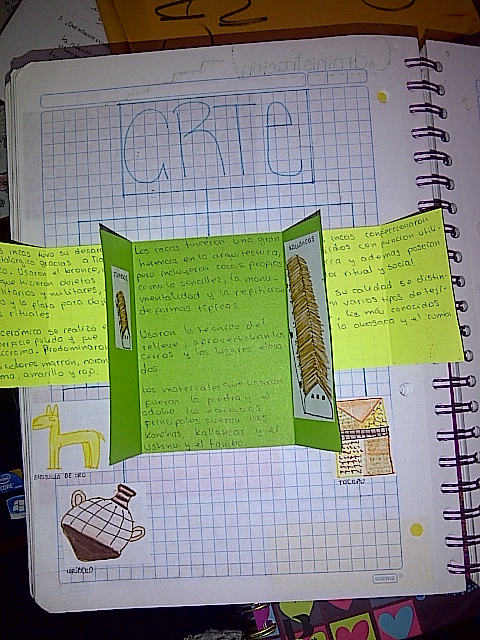 ARTe
incas tuvo su desar
talúrgico gracias a Tia
co. Usaron el bronce,
que hicieron objetos
militares y
y la plata para obj
rituales.
cerámico se realizó e
pulida y que
Predominaron
colores marrón, naran
ma, amarillo y rojo.
TUMBOS
Los incas tuvieron una gran
influencia en la arquitectura,
pero incluyeron cosas propias
como la sencillez, la monu-
mentalidad y la repetición
de formas típicas.
Usaron la técnica del
relieve, aprovechaban los
cerros y los lugares eleva-
dos.
Los materiales que usaron
fueron la piedra y el
adobe los edificios
principales fueron las
Kanchas, Kallancas y el
Ushnu y el tambo.
KALLANCAS
incas confeccionaron
tejidos con función utili-
taria y además poseían
valor ritual y social.
su calidad se distin-
varios tipos de teji-
los más conocidos
la abasca y el cumbi
TOCAPU
DE ORO
norma